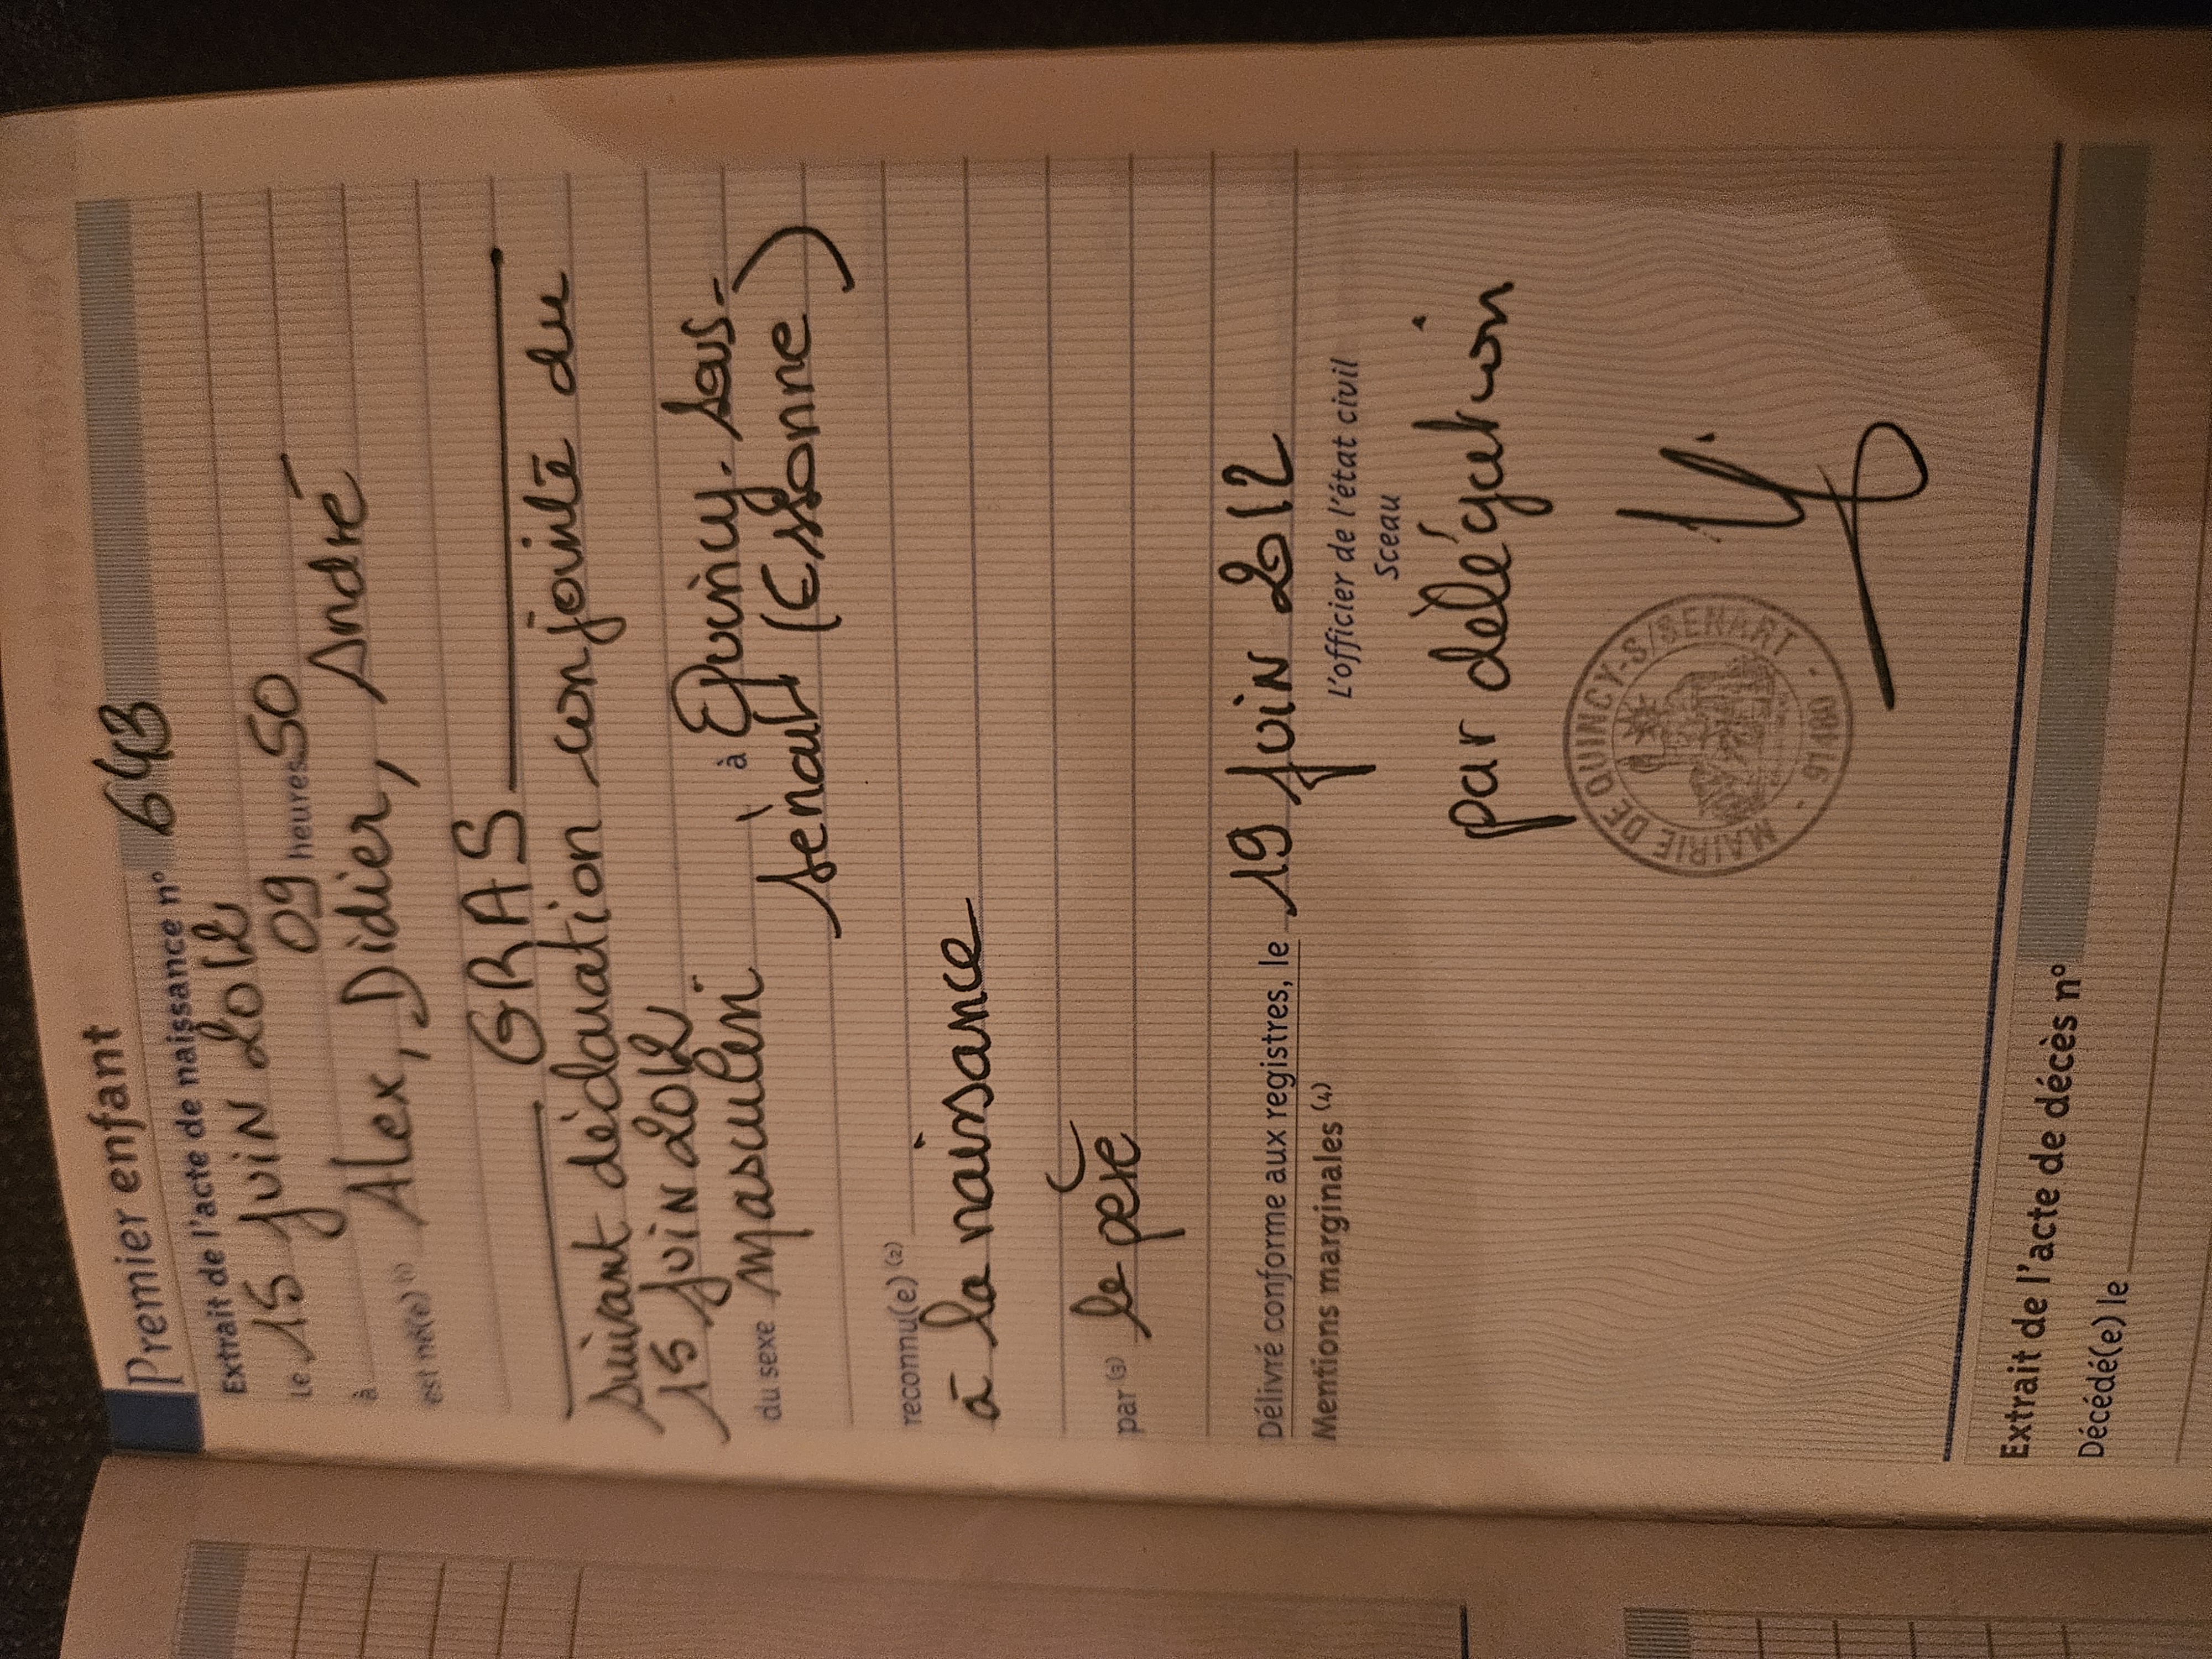 Premier enfant
Extrait de l'acte de naissance n° 643
Le 15 juin 2012
à 09 heures 50
est né(e) (1) Alex, Didier, André
GRAS
suivant déclaration conjointe du
15 juin 2012
du sexe masculin à Quincy-sous-
Sénart (Essonne)
reconnu(e) (2)
à la naissance
par (3) le père
Délivré conforme aux registres, le 19 juin 2012
Mentions marginales (4)
L'officier de l'état civil
Sceau
par délégation
MAIRIE DE QUINCY-S/SENART - 91480 -
Extrait de l'acte de décès n°
Décédé(e) le